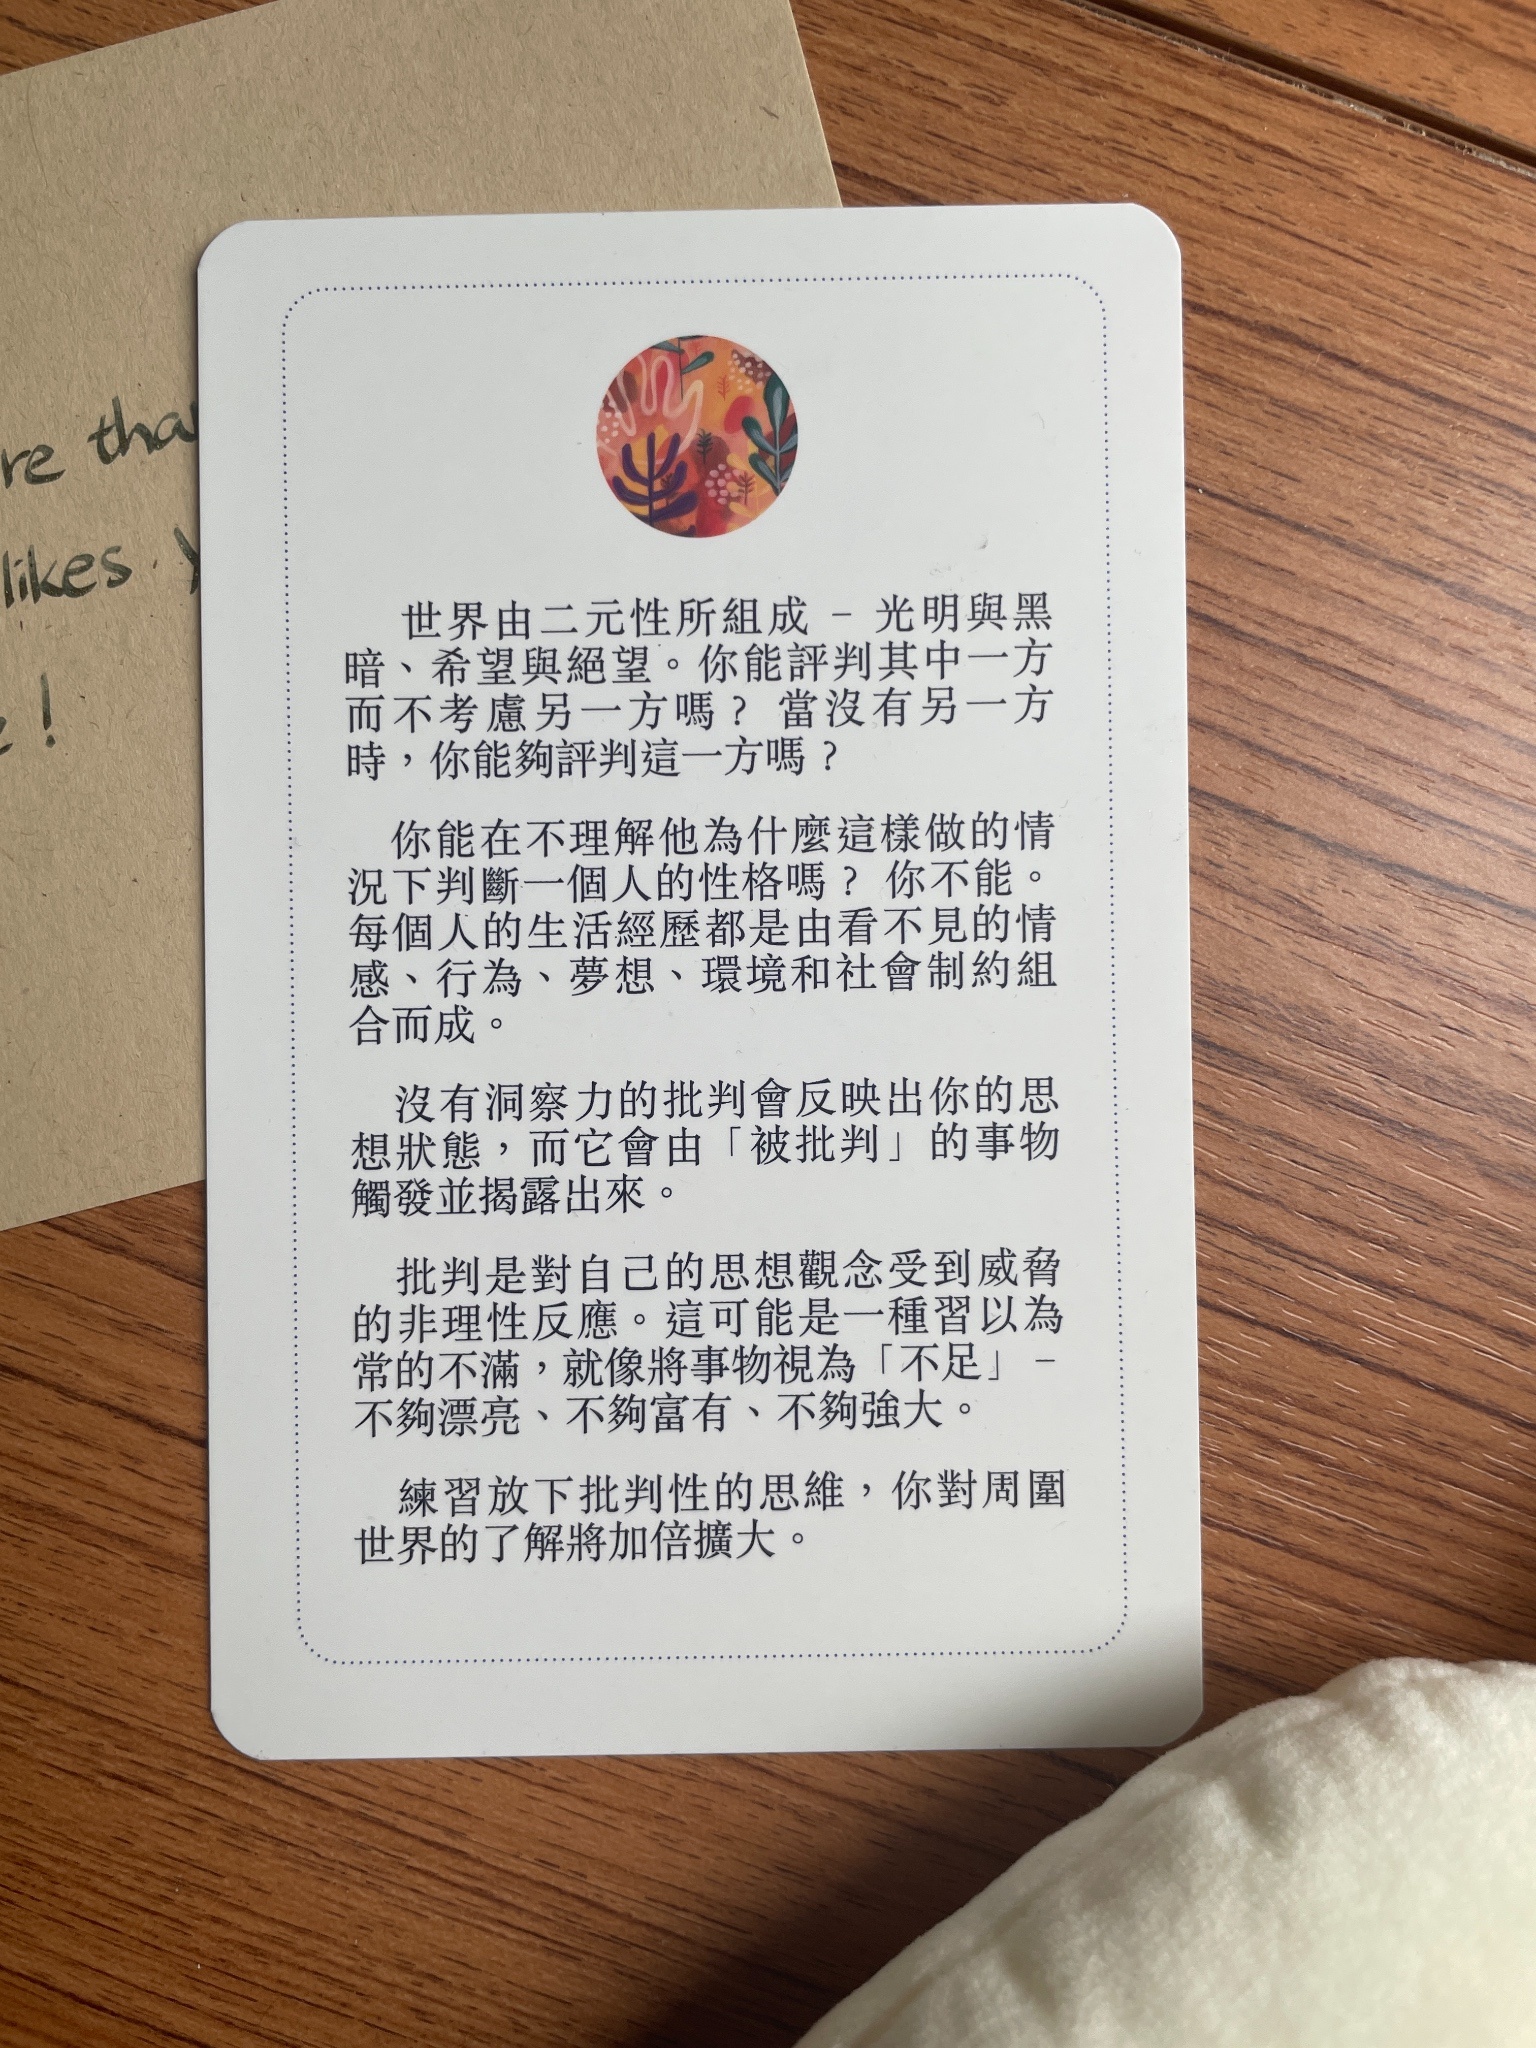 re tha
likes. Y
!
世界由二元性所組成 – 光明與黑
暗、希望與絕望。你能評判其中一方
而不考慮另一方嗎? 當沒有另一方
時，你能夠評判這一方嗎?
你能在不理解他為什麼這樣做的情
況下判斷一個人的性格嗎? 你不能。
每個人的生活經歷都是由看不見的情
感、行為、夢想、環境和社會制約組
合而成。
沒有洞察力的批判會反映出你的思
想狀態，而它會由「被批判」的事物
觸發並揭露出來。
批判是對自己的思想觀念受到威脅
的非理性反應。這可能是一種習以為
常的不滿，就像將事物視為「不足」 –
不夠漂亮、不夠富有、不夠強大。
練習放下批判性的思維，你對周圍
世界的了解將加倍擴大。